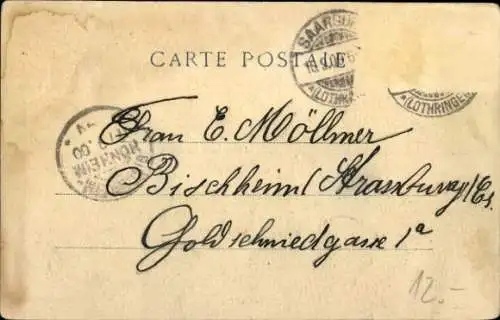 CARTE POSTALE
SAARBU
(LOTHR
(LOTHRINGEN)
Frau E. Möllmer
Bischheim/Strassburg/Els.
Goldschmiedgasse 1a
12.-